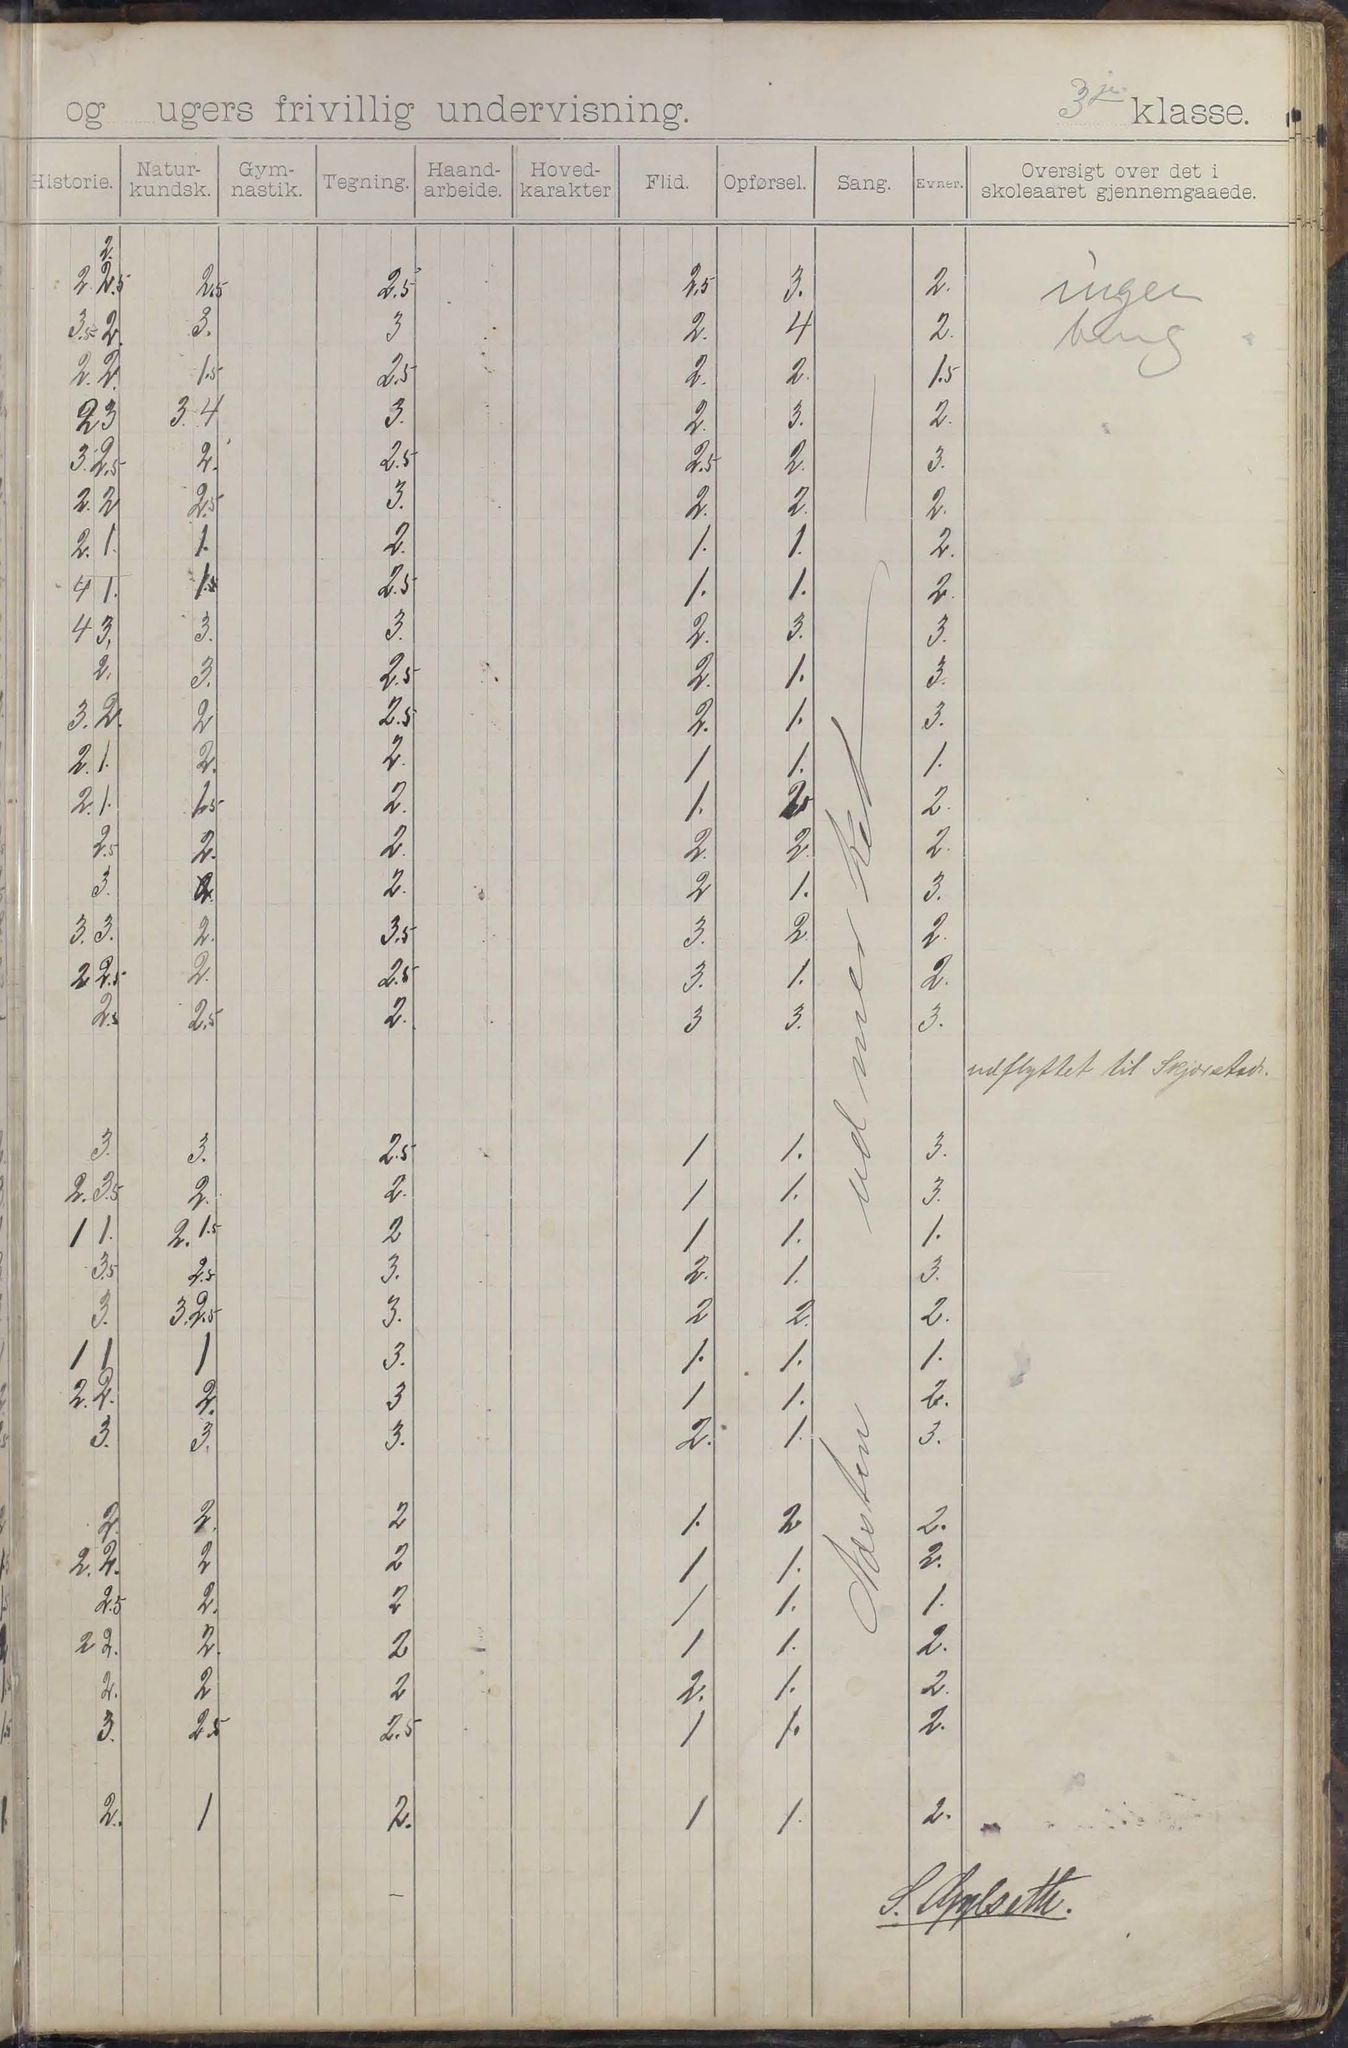 og ugers frivillig undervisning. 3je klasse.
Historie. Natur-kundsk. Gym-nastik. Tegning. Haand-arbeide. Hoved-karakter Flid. Opførsel. Sang. Evner. Oversigt over det i skoleaaret gjennemgaaede.
2.
2. 2.5 2.5 2.5 2.5 3. 2. ingen
3.5 2. 3. 3 2. 4 2.
2. 2. 1.5 2.5 2. 2. 1.5
2 3 3. 4 3. 2. 3. 2.
3. 2.5 2. 2.5 2.5 2. 3.
2. 2 2.5 3. 2. 2. 2.
2. 1. 1. 2. 1. 1. 2.
4 1. 1.5 2.5 1. 1. 2.
4 3. 3. 3. 2. 3. 3.
2. 3. 2.5 2. 1. 3.
3. 2. 2 2.5 2. 1. 3.
2. 1. 2. 2. 1 1. 1.
2. 1. 1.5 2. 1. 2.5 2.
2.5 2. 2. 2. 2. 2.
3. 2. 2. 2 1. 3.
3. 3. 2. 3.5 3. 2. 2.
2 2.5 2. 2.5 3. 1. 2.
2.5 2.5 2. 3 3. 3.
udflyttet til Skjerstad.
3. 3. 2.5 1 1. 3.
2. 3.5 2. 2. 1 1. 3.
1 1. 2. 1.5 2 1 1. 1.
3.5 2.5 3. 2. 1. 3.
3. 3. 2.5 3. 2 2. 2.
1 1 1 3. 1. 1. 1.
2. 2. 2. 3 1 1. 2.
3. 3. 3. 2. 1. 3.
2. 2. 2 1. 2 2.
2. 2. 2 2 1 1. 2.
2.5 2. 2 1 1. 1.
2 2. 2. 2 1 1. 2.
2. 2 2 2. 1. 2.
3. 2.5 2.5 1 1. 2.
2. 1 2. 1 1. 2.
Næsten ud med